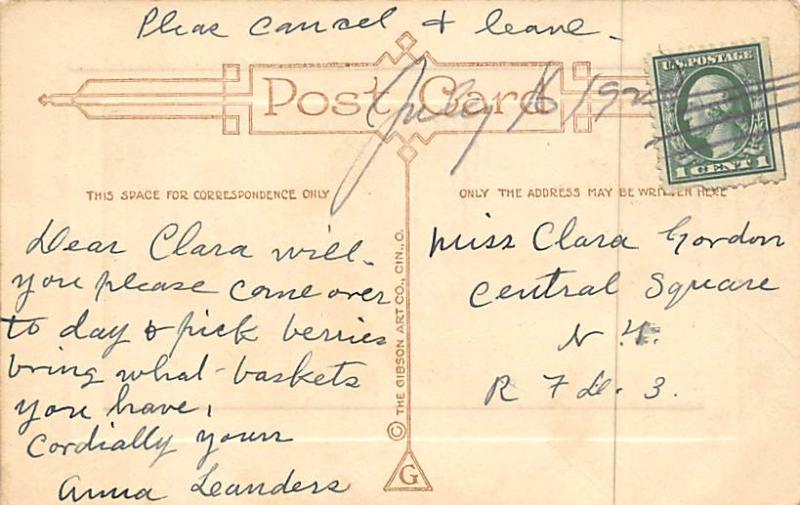 Pleas cancel & leave -
Post Card
July 16 192
U.S. POSTAGE
1 CENT 1
THIS SPACE FOR CORRESPONDENCE ONLY
ONLY THE ADDRESS MAY BE WRITTEN HERE
Dear Clara will
you please come over
to day & pick berries
bring what baskets
you have,
Cordially yours
Anna Leanders
© THE GIBSON ART CO., CIN., O.
G
Miss Clara Gordon
Central Square
N Y.
R F D. 3.